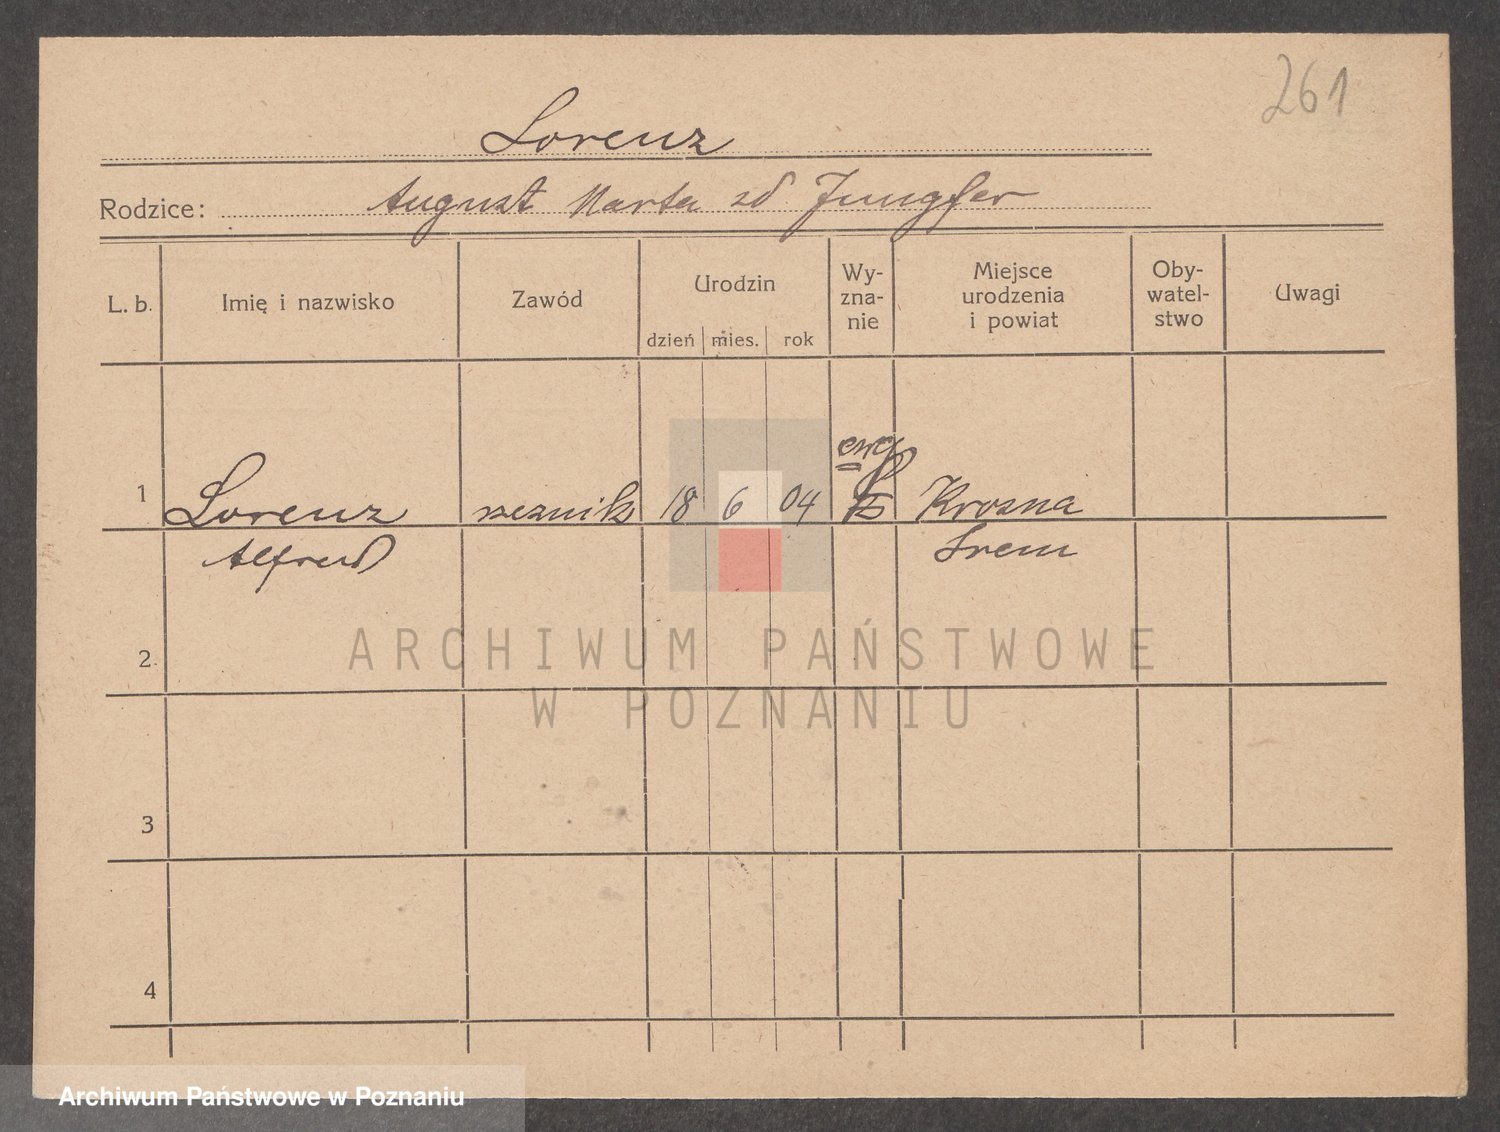 261
Lorenz
Rodzice: August Marta zd Jungfer
L. b. Imię i nazwisko Zawód Urodzin Wy-zna-nie Miejsce urodzenia i powiat Oby-watel-stwo Uwagi
dzień mies. rok
ewg
1 Lorenz rzeznik 18 6 04 Krosna
Alfred Srem
2.
3
4
ARCHIWUM PAŃSTWOWE
W POZNANIU
Archiwum Państwowe w Poznaniu